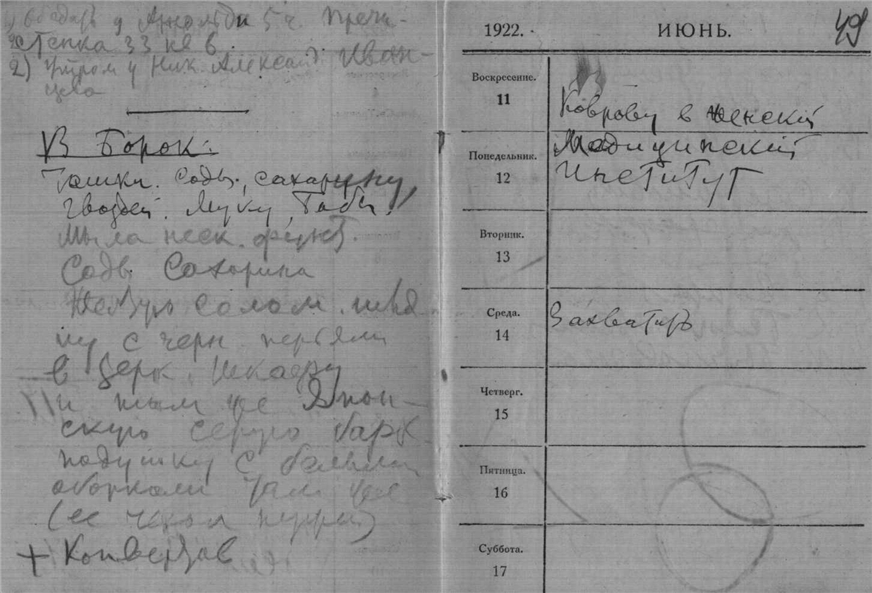 обедать у 5 ч. Пречи-
стенка 33 кв 6
2) Утром у Ник. Александ. Иван-
цова
В Борок:
Чашки. Соды, сахарину,
гвоздей. Муку, Табак,
Мыла неск. фунт.
Соды Сахарина
Желтую солом. шля-
пу с черн. перьями
в зерк. шкафу
и там же Япон-
скую серую барх.
подушку с белыми
оборками там же
(ее чехол
+ Конвертов
1922.
ИЮНЬ.
49
Воскресение.
11
Коврову в Женский
Понедельник.
12
Медицинский
Институт
Вторник.
13
Среда.
14
Захватить
Четверг.
15
Пятница.
16
Суббота.
17